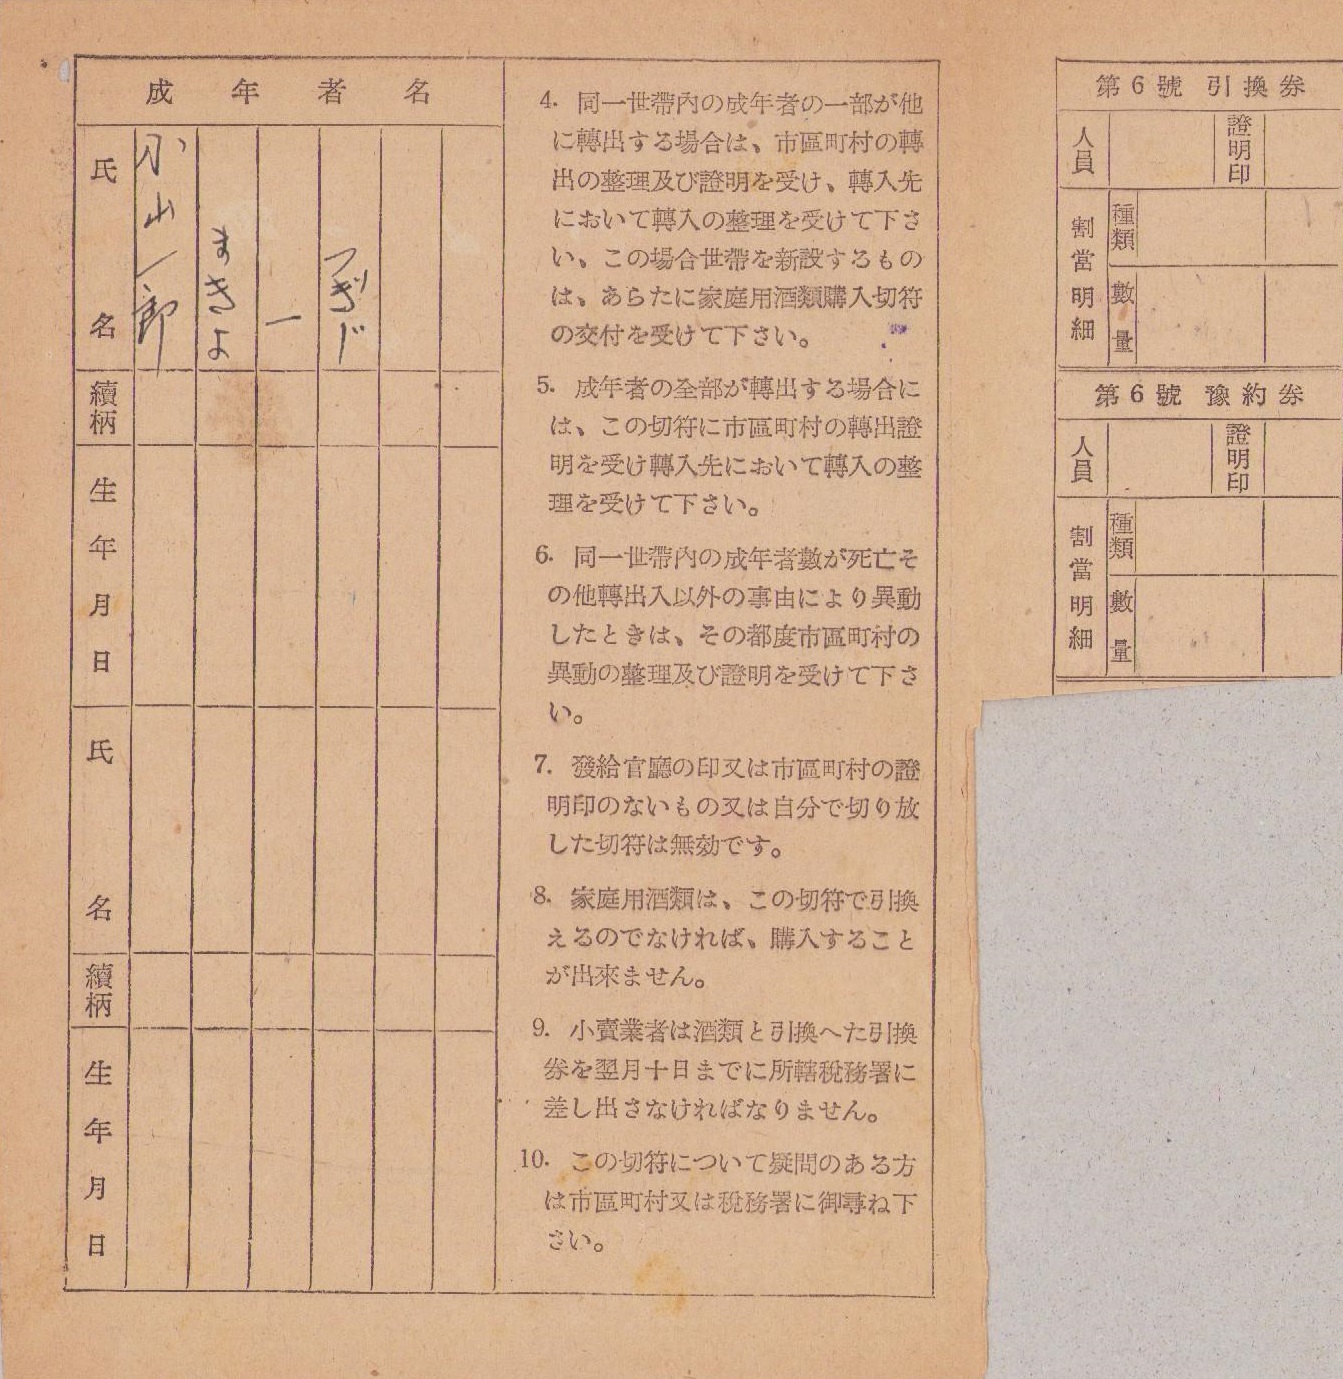 成年者名
氏名
小山一郎
まさよ
一
つぎじ
續柄
生年月日
氏名
續柄
生年月日
4. 同一世帶內の成年者の一部が他
に轉出する場合は、市區町村の轉
出の整理及び證明を受け、轉入先
において轉入の整理を受けて下さ
い、この場合世帶を新設するもの
は、あらたに家庭用酒類購入切符
の交付を受けて下さい。
5. 成年者の全部が轉出する場合に
は、この切符に市區町村の轉出證
明を受け轉入先において轉入の整
理を受けて下さい。
6. 同一世帶內の成年者數が死亡そ
の他轉出入以外の事由により異動
したときは、その都度市區町村の
異動の整理及び證明を受けて下さ
い。
7. 發給官廳の印又は市區町村の證
明印のないもの又は自分で切り放
した切符は無効です。
8. 家庭用酒類は、この切符で引換
えるのでなければ、購入すること
が出來ません。
9. 小賣業者は酒類と引換へた引換
券を翌月十日までに所轄稅務署に
差し出さなければなりません。
10. この切符について疑問のある方
は市區町村又は稅務署に御尋ね下
さい。
第6號 引換券
人員
證明印
割當明細
種類
數量
第6號 豫約券
人員
證明印
割當明細
種類
數量